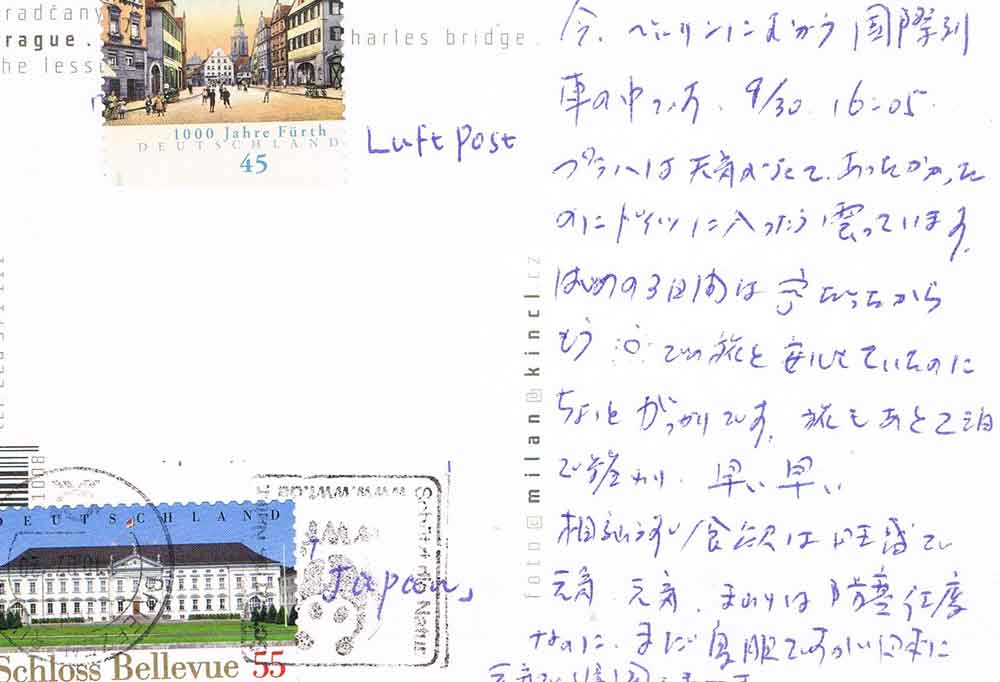 radčany
rague.
harles bridge.
he less
1000 Jahre Fürth
DEUTSCHLAND
45
Luft Post
今、ベルリンにむかう国際列
車の中です、9/30 16:05.
プラハは天気がよくて、あったかかった
のにドイツに入ったら曇っています。
はじめの3日間は
だったから
もう
での旅と安心していたのに
ちょっとがっかりです。旅もあと2泊
で終わり、早い早い
相変わらず食欲は旺盛で
元気、元気、まわりは
なのに、まだ夏服ですが、日本に
foto@milan@kincl.cz
1008
DEUTSCHLAND
Japan
Schloss Bellevue 55